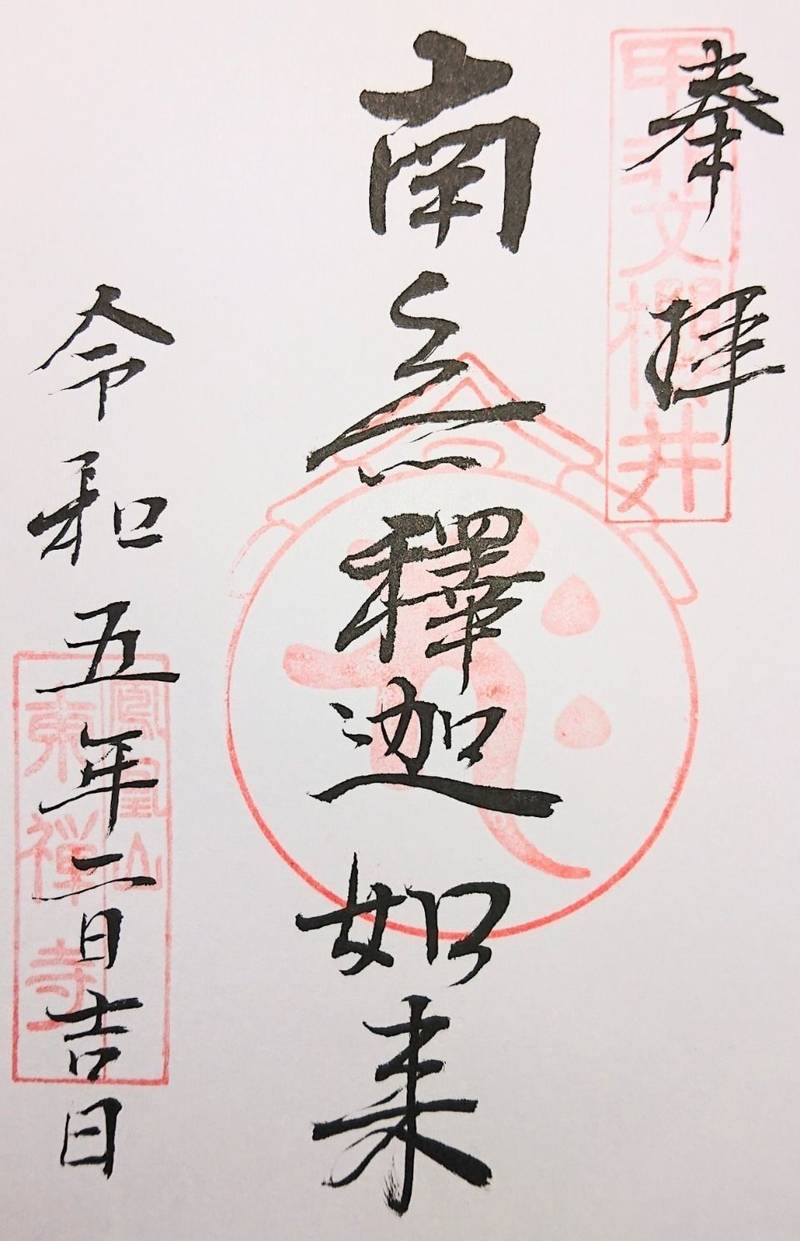 奉拝
南無釋迦如来
令和五年二月吉日
鳳凰山
東禅寺